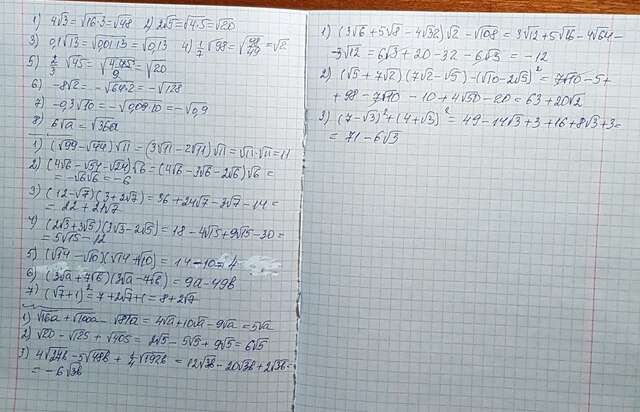 1) 4√3 = √16·3 = √48 2) 2√5 = √4·5 = √20
3) 0,1√13 = √0,01·13 = √0,13 4) 1/7 √98 = √98/49 = √2
5) 2/3 √45 = √4·45/9 = √20
6) -8√2 = -√64·2 = -√128
7) -0,3√10 = -√0,09·10 = -√0,9
8) 6√a = √36a
1) (√99 - √44)√11 = (3√11 - 2√11)√11 = √11·√11 = 11
2) (4√6 - √54 - √24)√6 = (4√6 - 3√6 - 2√6)√6 =
= -√6√6 = -6
3) (12-√7)(3+2√7) = 36 + 24√7 - 3√7 - 14 =
= 22 + 21√7
4) (2√3+3√5)(3√3-2√5) = 18 - 4√15 + 9√15 - 30 =
= 5√15 - 12
5) (√14 - √10)(√14+√10) = 14 - 10 = 4
6) (3√a + 7√b)(3√a - 7√b) = 9a - 49b
7) (√7+1)² = 7 + 2√7 + 1 = 8 + 2√7
1) √16a + √100a - √81a = 4√a + 10√a - 9√a = 5√a
2) √20 - √125 + √405 = 2√5 - 5√5 + 9√5 = 6√5
3) 4√27b - 5√48b + 1/4 √192b = 12√3b - 20√3b + 2√3b =
= -6√3b
1) (3√6 + 5√8 - 4√32)√2 - √108 = 3√12 + 5√16 - 4√64 -
- 3√12 = 6√3 + 20 - 32 - 6√3 = -12
2) (√5 + 7√2)(7√2 - √5) - (√10 - 2√5)² = 7√10 - 5 +
+ 98 - 7√10 - 10 + 4√50 - 20 = 63 + 20√2
3) (7-√3)² + (4+√3)² = 49 - 14√3 + 3 + 16 + 8√3 + 3 =
= 71 - 6√3